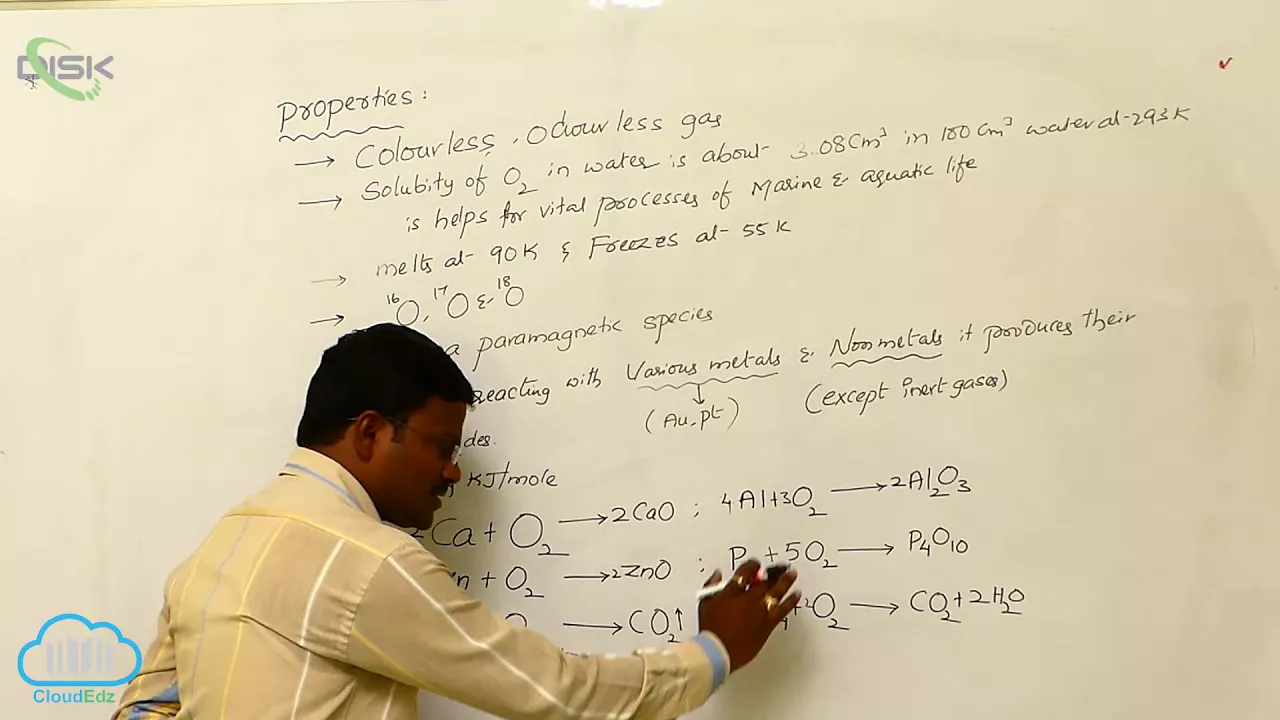 DISK
Properties:
→ Colourless, Odourless gas
→ Solubity of O₂ in water is about 3.08 Cm³ in 100 Cm³ water at 293 K
is helps for vital processes of Marine & aquatic life
→ melts at 90 K & Freezes at 55 K
→ ¹⁶O, ¹⁷O & ¹⁸O
a paramagnetic species
reacting with Various metals & Nonmetals it produces their
(Au, pt) (except inert gases)
des.
KJ/mole
2Ca + O₂ → 2CaO ; 4Al + 3O₂ → 2Al₂O₃
n + O₂ → 2ZnO ; P + 5O₂ → P₄O₁₀
CO₂↑ + 2O₂ → CO₂ + 2H₂O
CloudEdz